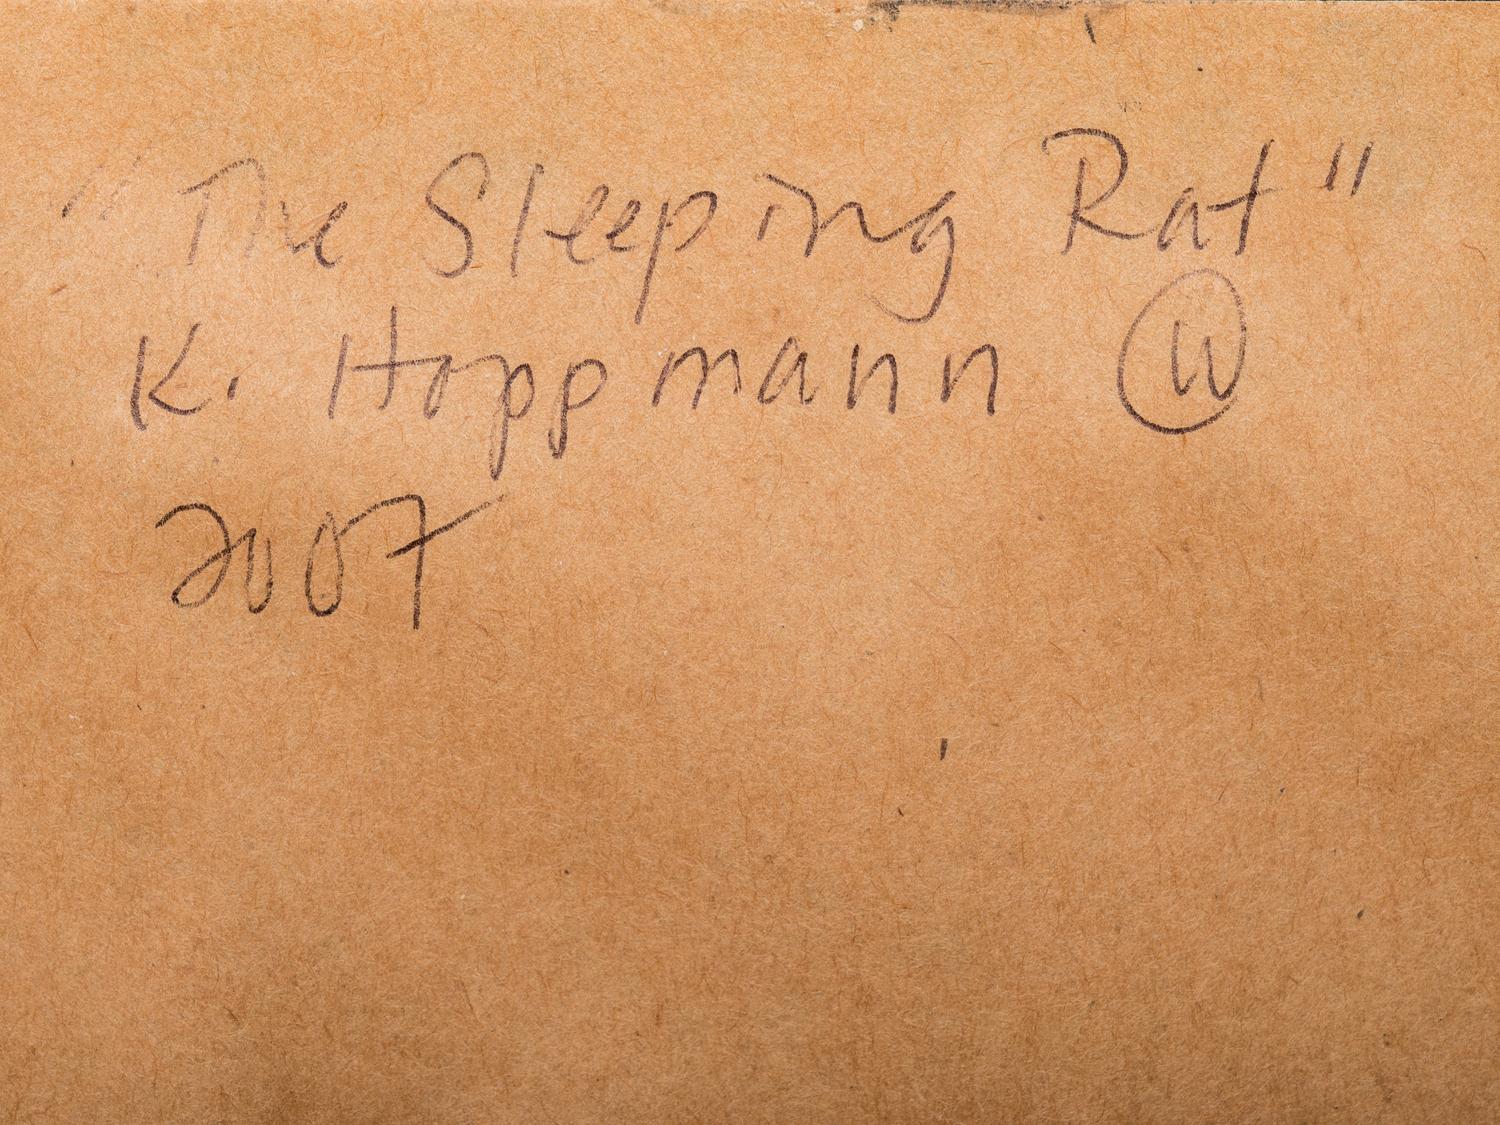 "The Sleeping Rat"
K. Hoppmann Ⓦ
2007